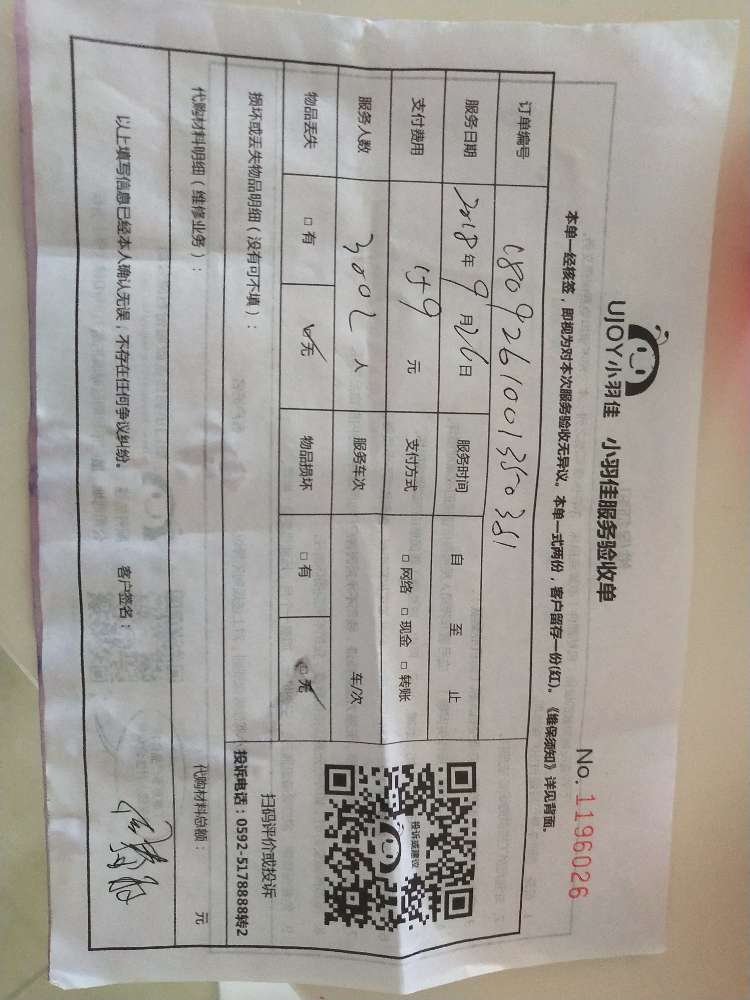 UJOY小羽佳 小羽佳服务验收单
No. 1196026
本单一经核签，即视为对本次服务验收无异议。本单一式两份，客户留存一份(红)。《维保须知》详见背面。
订单编号 1809261001350351
服务日期 2018年9月26日 服务时间 自 至 止
支付费用 159元 支付方式 □网络 □现金 □转账
服务人数 人 服务车次 车/次
物品丢失 □有 □无 物品损坏 □有 □无
投诉或建议
扫码评价或投诉
投诉电话：0592-5178888转2
损坏或丢失物品明细（没有可不填）：
代购材料明细（维修业务）： 代购材料总额： 元
以上填写信息已经本人确认无误，不存在任何争议纠纷。 客户签名：